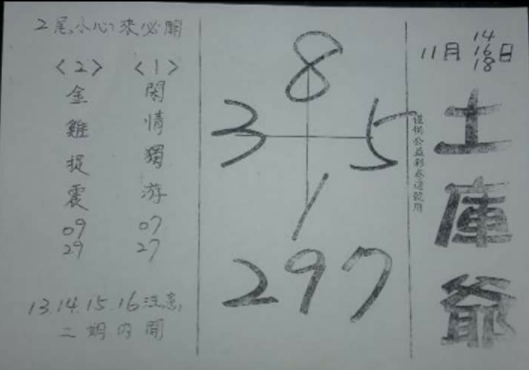 11月 14 16 18日
土庫爺
僅供公益彩券選號用
8
3 5
1
297
2尾小心來必開
<1>
閑情獨游
07
27
<2>
金雞提震
09
29
13.14.15.16注意
二期內開